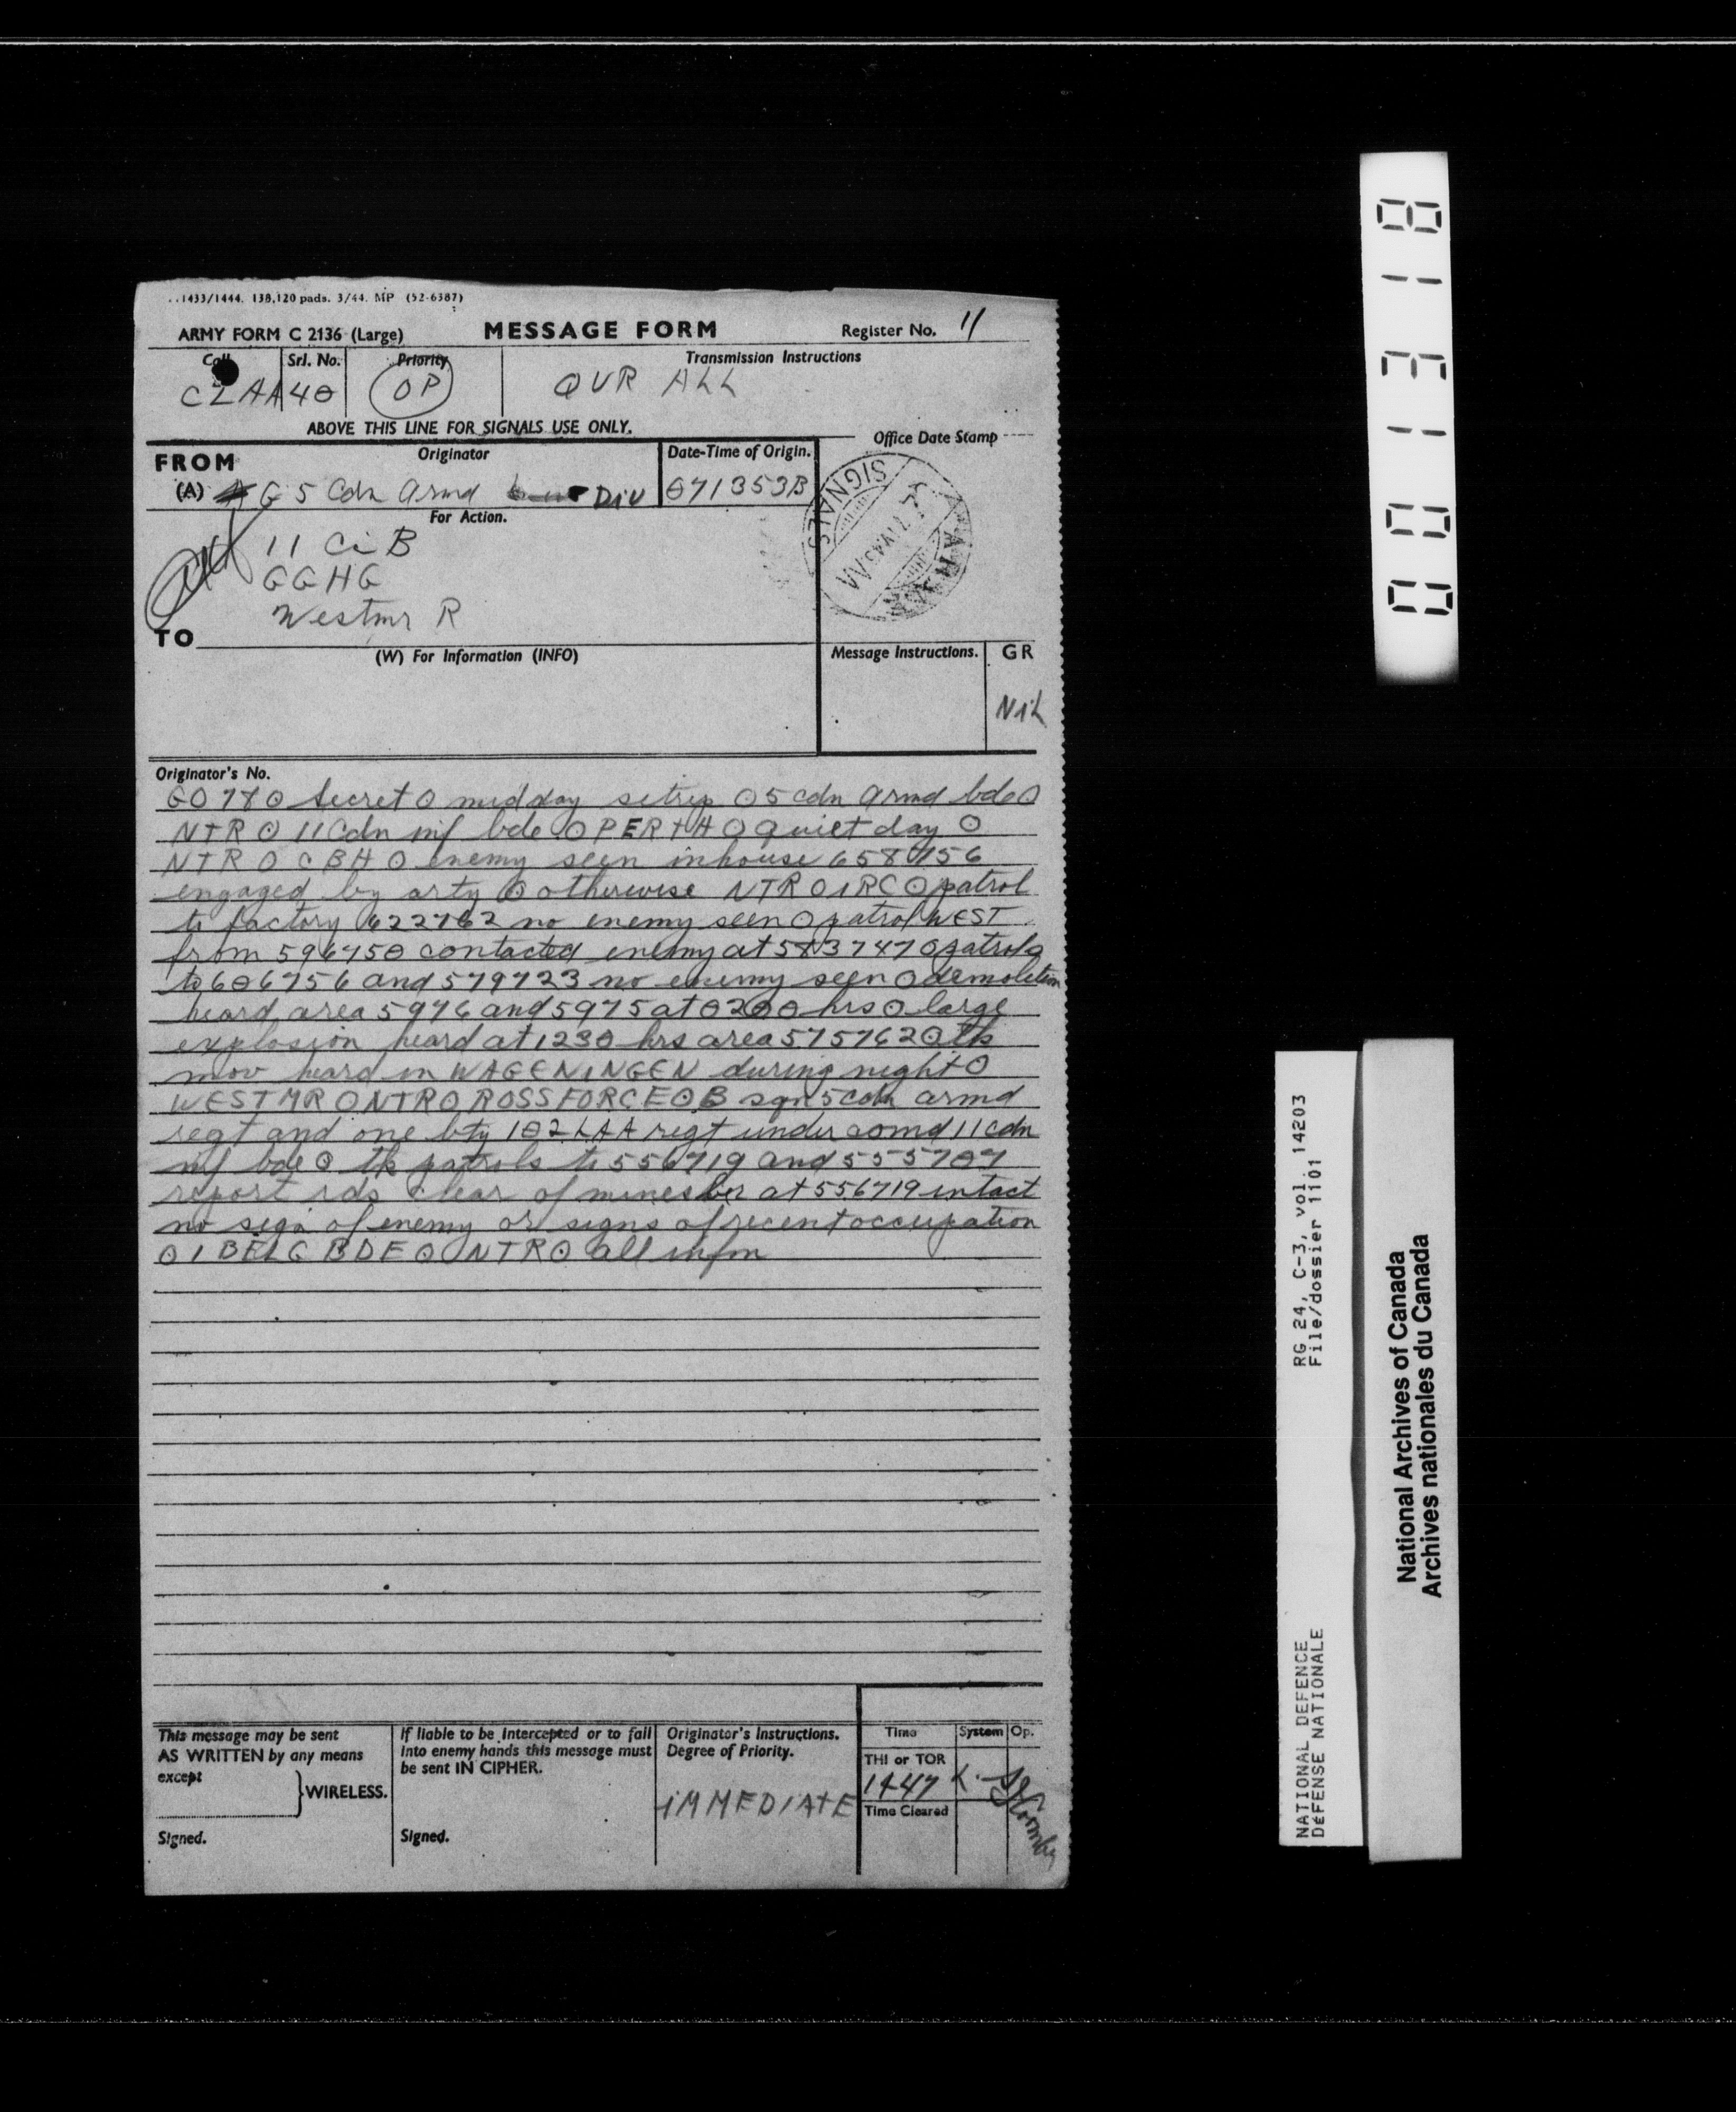 ..1433/1444. 138,120 pads. 3/44. MP (52-6387)
ARMY FORM C 2136 (Large) MESSAGE FORM Register No. 11
Call Srl. No. Priority Transmission Instructions
CLAA 40 OP QVR ALL
ABOVE THIS LINE FOR SIGNALS USE ONLY.
Office Date Stamp
FROM Originator Date-Time of Origin.
(A) G 5 Cdn Armd Div 071353B
SIGNALS
For Action.
11 CiB
GGHG
Westmr R
TO
(W) For Information (INFO) Message Instructions. GR
NiL
Originator's No.
GO 78 O Secret O midday sitrep O 5 cdn armd bde O
NTR O 11 Cdn inf bde O PERTH O quiet day O
NTR O CBH O enemy seen in house 658756
engaged by arty O otherwise NTR O IRC O patrol
to factory 622762 no enemy seen O patrol WEST
from 596750 contacted enemy at 583747 O patrols
to 606756 and 579723 no enemy seen O demolition
heard area 5976 and 5975 at 0200 hrs O large
explosion heard at 1230 hrs area 575762 O tk
mov heard in WAGENINGEN during night O
WESTMR O NTR O ROSSFORCE O B sqn 5 cdn armd
regt and one bty 102 LAA regt under comd 11 cdn
inf bde O tk patrols to 556719 and 555707
report rds clear of mines br at 556719 intact
no sign of enemy or signs of recent occupation
O 1 BELG BDE O NTR O all infm
This message may be sent AS WRITTEN by any means except } WIRELESS.
Signed.
If liable to be intercepted or to fall into enemy hands this message must be sent IN CIPHER.
Signed.
Originator's Instructions.
Degree of Priority.
iMMEDIATE
Time System Op.
THI or TOR
1447 L.
Time Cleared
001318
RG 24, C-3, vol. 14203
File/dossier 1101
NATIONAL DEFENCE
DéFENSE NATIONALE
National Archives of Canada
Archives nationales du Canada